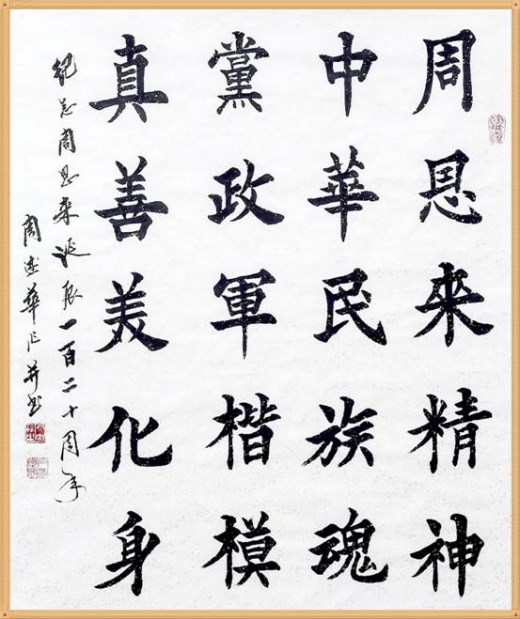 周恩来精神
中華民族魂
黨政軍楷模
真善美化身
纪念周恩来诞辰一百二十周年
周 華 并书